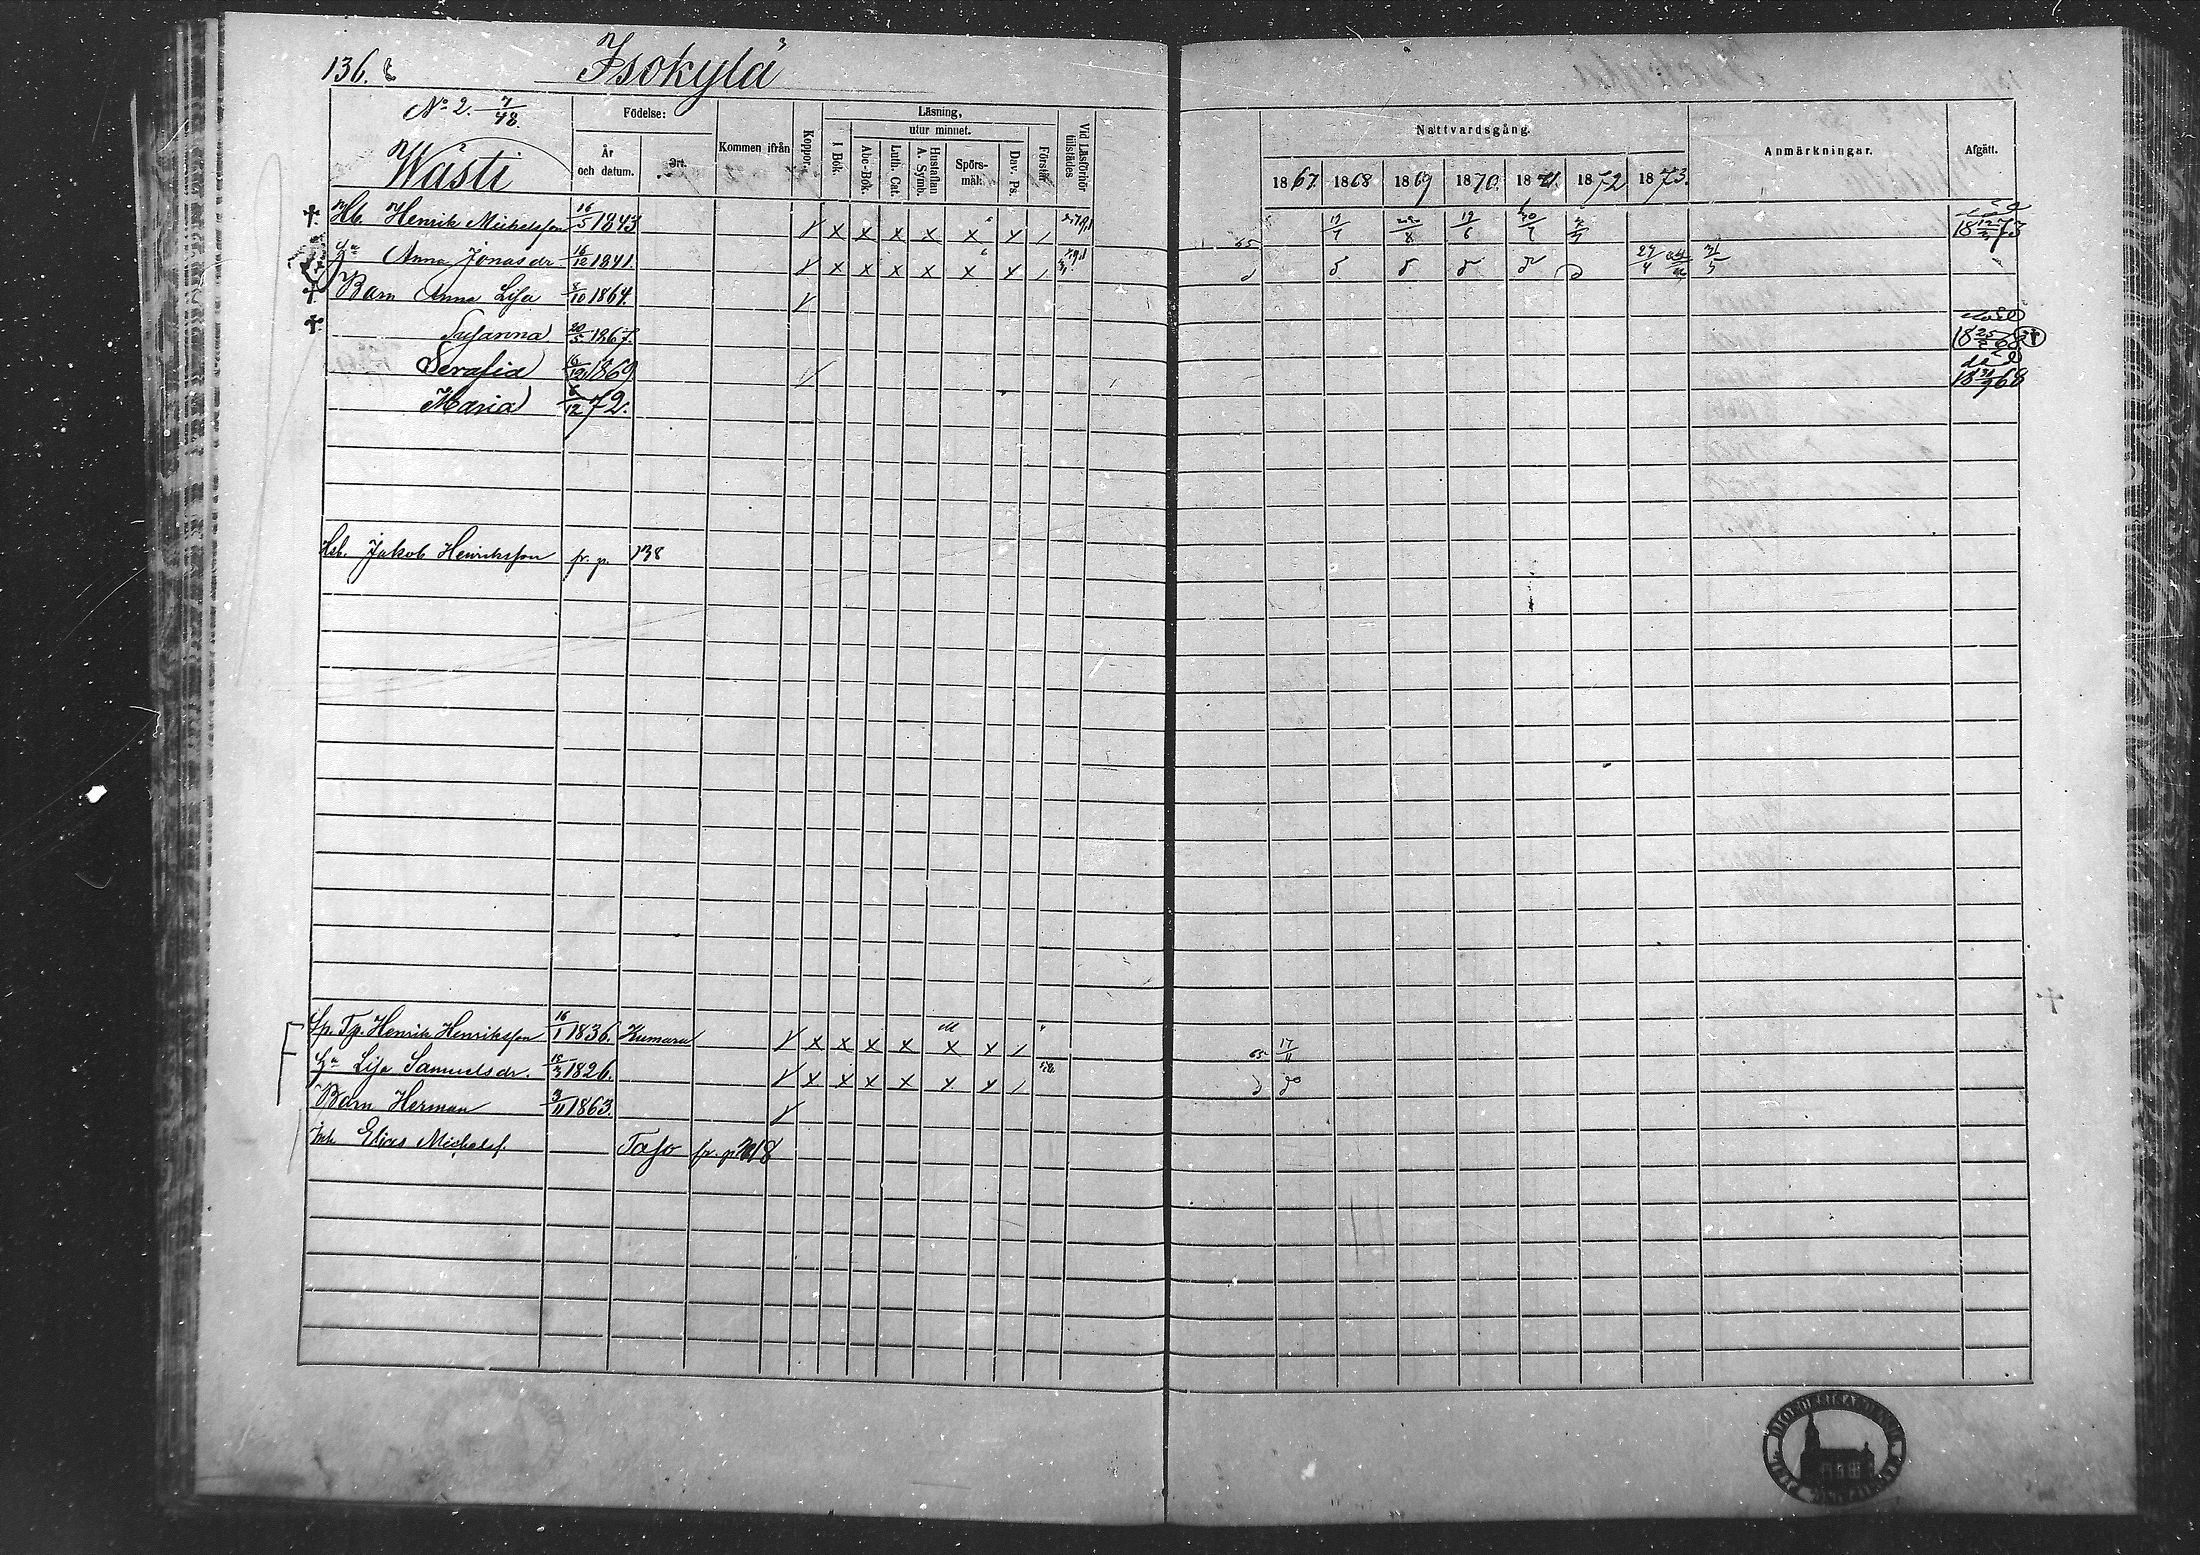 136.
Isokylä
No 2. 7/48.
Wästi
Födelse:
År och datum.
Ort.
Kommen ifrån
Koppor.
Läsning,
I Bok.
utur minnet.
Abc-Bok.
Luth. Cat.
Hustaflan A. Symb.
Spörs-mål.
Dav. Ps.
Förstått
Vid Läsförhör tillstädes
Nattvardsgång.
1867. 1868 1869 1870. 1871. 1872 1873.
Anmärkningar.
Afgått.
†. Hb. Henrik Michelsson 16/5 1843 V x x x x x x / 17/7 19/6 död 18 12/3 73
Hu Anna Jonasdr 16/12 1841. V x x x x x x / 65 27/4
† Barn Anna Lisa 8/10 1864. V
†. Susanna 20/5 1867. död 18 25/2 68
Serafia 16/12 1869 V död 1868
Maria 6/12 72.
Hsb. Jakob Henriksson fr. p. 138
Sp. Tp. Henrik Henriksson 16/1 1836. Kumara V x x x x x x / 65 17/11
Hu Lisa Samuelsdr. 18/3 1826. V x x x x x x / d do
Barn Herman 3/11 1863. V
Inh Elias Michelss. Taso fr. p